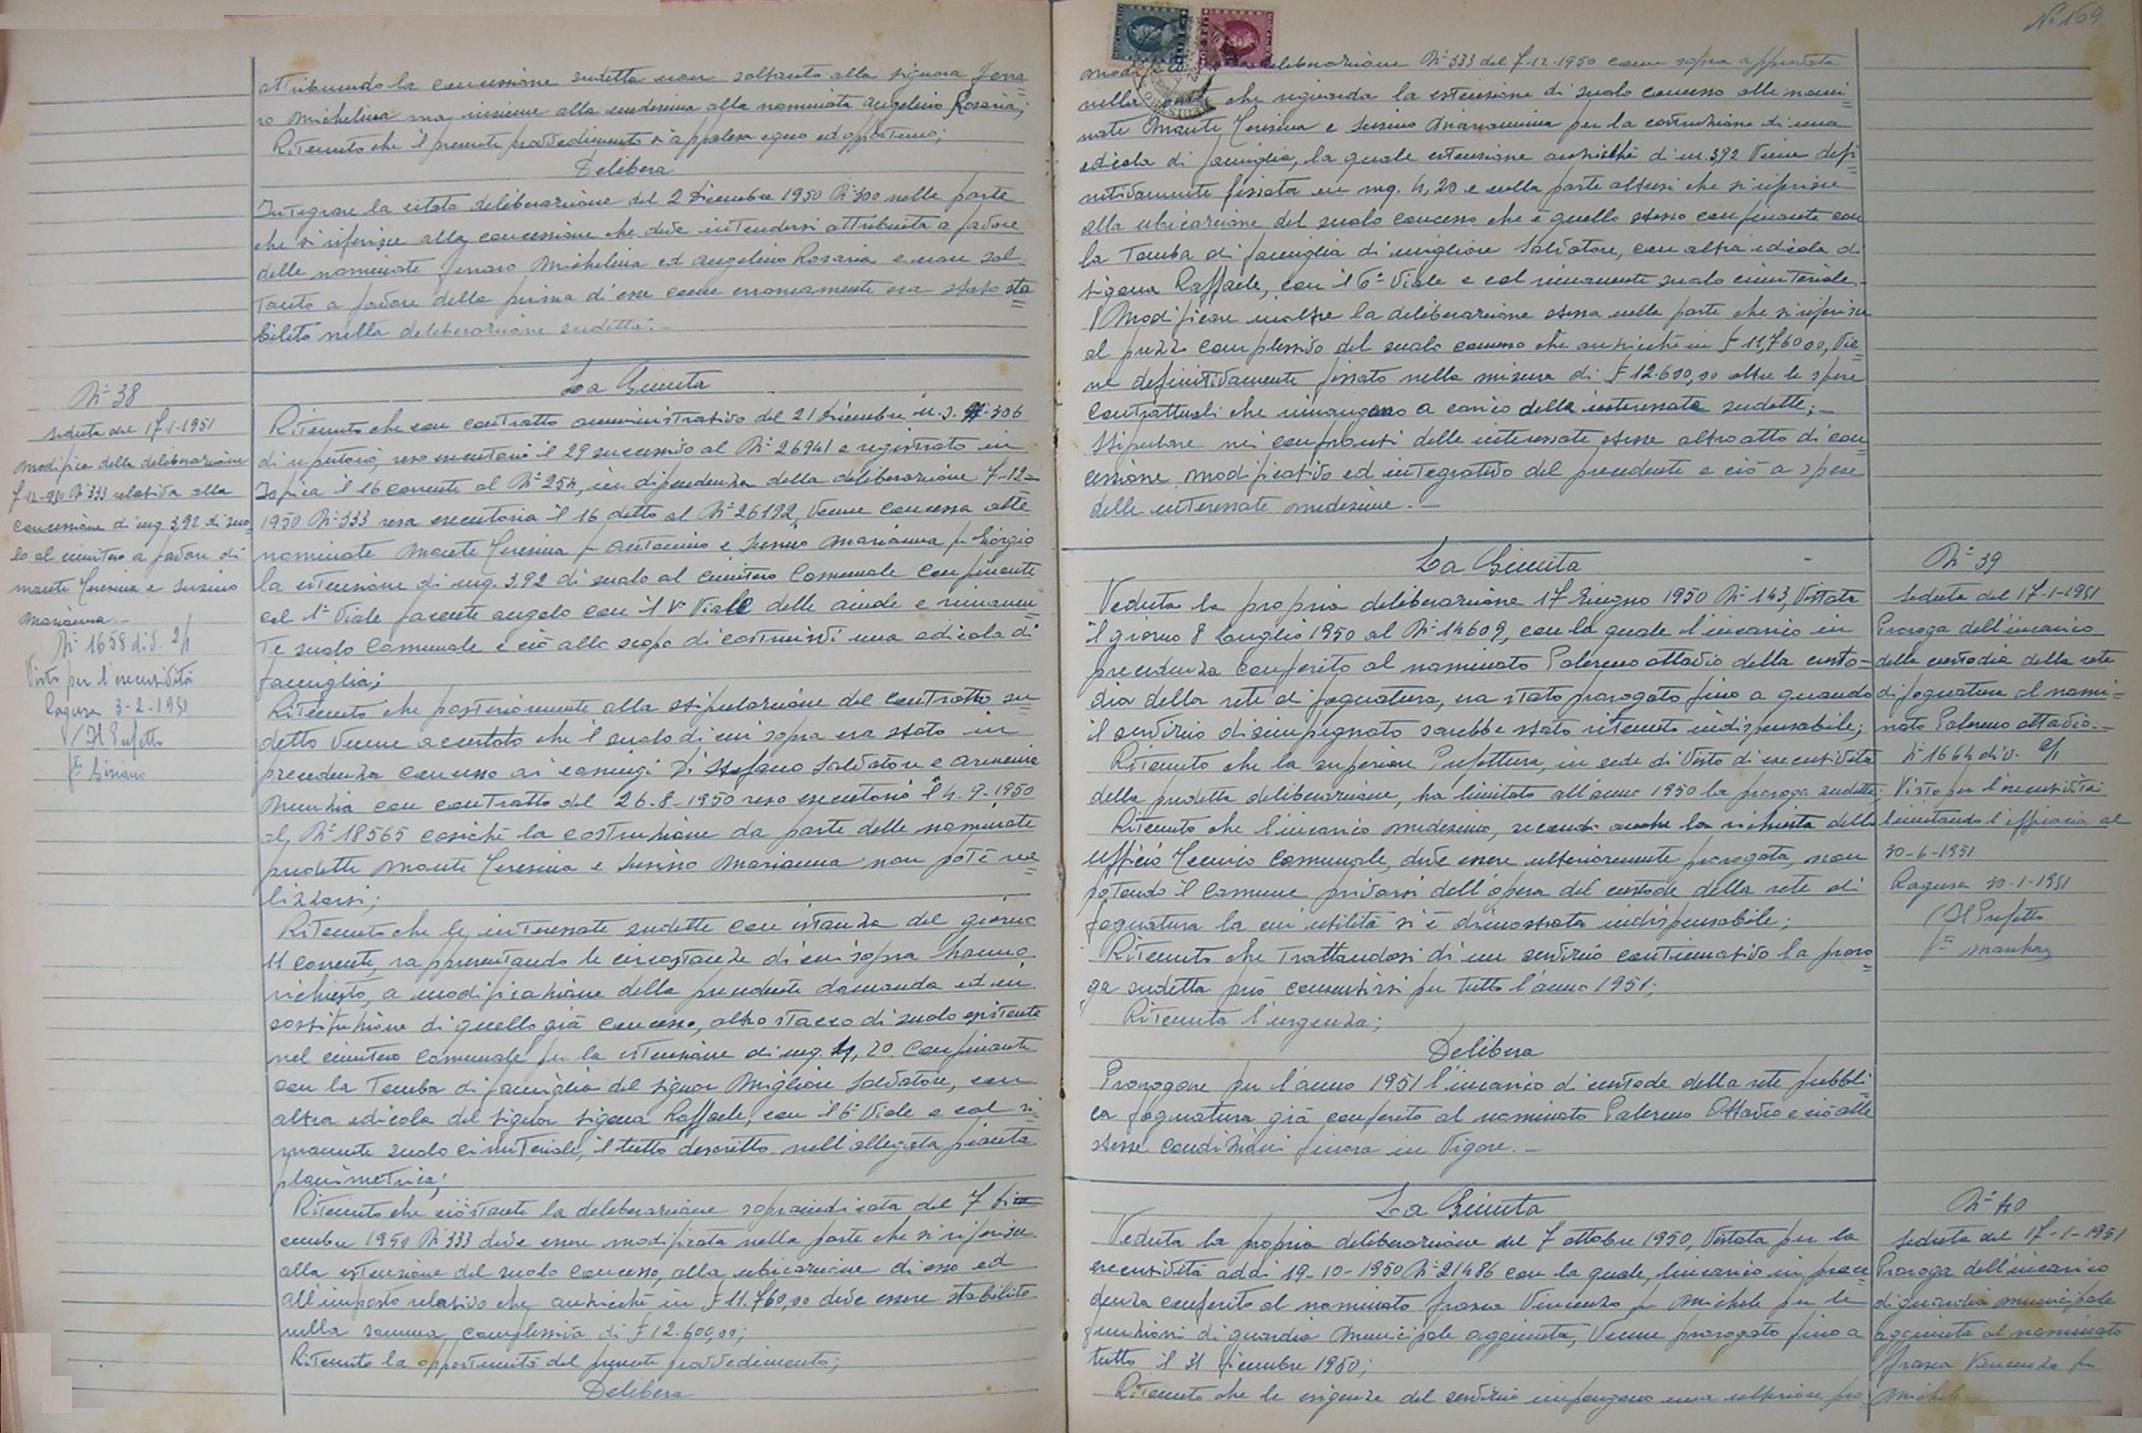 attribuendo la concessione sudetta non soltanto alla signora Jenna=
ro Michelina ma, insieme alla medesima alla nominata Angelino Rosaria;
Ritenuto che il presente provvedimento si appalesa equo ed opportuno;
Delibera
Integrare la citata deliberazione del 2 Dicembre 1950 N° 300 nelle parte
che si riferisce alla concessione che deve intendersi attribuita a favore
delle nominate Jennaro Michelina ed Angelino Rosaria e non sol-
tanto a favore della prima di esse come erroneamente era stato sta=
bilito nella deliberazione sudetta.-
N° 38
seduta del 17-1-1951
Modifica della deliberazione
7-12-950 N° 333 relativa alla
concessione di mq. 3,92 di suo=
lo al cimitero a favore di
Monte Teresina e Susino
Marianna.-
N° 1658 div. 2/1
Visto per l'esecutività
Ragusa 3-2-1951
Il Prefetto
La Giunta
Ritenuto che con contratto amministrativo del 21 Dicembre u.s. N° 306
di repertorio, reso esecutorio il 29 successivo al N° 26941 e registrato in
Ispica il 16 corrente al N° 254, in dipendenza della deliberazione 7-12=
1950 N° 333 resa esecutoria il 16 detto al N° 26192, venne concessa alle
nominate Monte Teresina fu Antonino e Susino Marianna fu Giorgio
la estensione di mq. 3,92 di suolo al Cimitero Comunale confinante
col 1° Viale facente angolo con il V° Viale delle aiuole e rimanen=
te suolo Comunale e ciò allo scopo di costruirvi una edicola di
famiglia;
Ritenuto che posteriormente alla stipulazione del contratto su=
detto venne accertato che il suolo di cui sopra era stato in
precedenza concesso ai coniugi Di Stefano Salvatore e Armenia
Nunzia con contratto del 26-8-1950 reso esecutorio il 4-9-1950
al N° 18565 cosichè la costruzione da parte delle nominate
predette Monte Teresina e Susino Marianna non potè rea=
lizzarsi;
Ritenuto che le interessate sudette con istanza del giorno
11 corrente, rappresentando le circostanze di cui sopra hanno
richiesto, a modificazione della precedente domanda ed in
sostituzione di quello già concesso, altro stacco di suolo esistente
nel cimitero comunale per la estensione di mq. 4,20 confinante
con la Tomba di famiglia del signor Migliore Salvatore, con
altra edicola del signor Sigona Raffaele, con il 6° Viale e col ri=
manente suolo cimiteriale, il tutto descritto nell'allegata pianta
planimetrica;
Ritenuto che ciò stante la deliberazione sopraindicata del 7 Di=
cembre 1950 N° 333 deve essere modificata nella parte che si riferisce
alla estensione del suolo concesso, alla ubicazione di esso ed
all'importo relativo che anzichè in £ 11.760,00 deve essere stabilito
nella somma complessiva di £ 12.600,00;
Ritenuto la opportunità del presente provvedimento;
Delibera
N° 169
deliberazione N° 333 del 7-12-1950 come sopra approvata
nella parte che riguarda la estensione di suolo concesso alle nomi=
nate Monte Teresina e Susino Marianna per la costruzione di una
edicola di famiglia, la quale estensione anzichè di m. 3,92 viene defi=
nitivamente fissata in mq. 4,20 e nella parte altresì che si riferisce
alla ubicazione del suolo concesso che è quello stesso confinante con
la Tomba di famiglia di Migliore Salvatore, con altra edicola di
Sigona Raffaele, con il 6° Viale e col rimanente suolo cimiteriale.-
Modificare inoltre la deliberazione stessa nelle parte che si riferisce
al prezzo complessivo del suolo concesso che anzichè in £ 11,760 00, vie=
ne definitivamente fissato nella misura di £ 12.600,00 oltre le spese
contrattuali che rimangono a carico delle interessate sudette;-
Stipulare nei confronti delle interessate stesse altro atto di con=
cessione modificativo ed integrativo del precedente e ciò a spese
delle interessate medesime.-
La Giunta
Veduta la propria deliberazione 17 Giugno 1950 N° 143, Vistata
il giorno 8 Luglio 1950 al N° 14609, con la quale l'incarico in
precedenza conferito al nominato Palermo Ottavio della custo=
dia della rete di fognatura, era stato prorogato fino a quando
il servizio disimpegnato sarebbe stato ritenuto indispensabile;
Ritenuto che la superiore Prefettura, in sede di visto di esecutività
della predetta deliberazione, ha limitato all'anno 1950 la proroga sudetta;
Ritenuto che l'incarico medesimo, secondo anche la richiesta dello
Ufficio Tecnico Comunale, deve essere ulteriormente prorogato, non
potendo il Comune privarsi dell'opera del custode della rete di
fognatura la cui utilità si è dimostrata indispensabile;
Ritenuto che trattandosi di un servizio continuativo la proro=
ga sudetta può consentirsi per tutto l'anno 1951;
Ritenuta l'urgenza;
Delibera
Prorogare per l'anno 1951 l'incarico di custode della rete pubbli=
ca fognatura già conferito al nominato Palermo Ottavio e ciò alle
stesse condizioni finora in vigore.-
N° 39
Seduta del 17-1-1951
Proroga dell'incarico
della custodia della rete
di fognatura al nomi=
nato Palermo Ottavio.-
N° 1664 div. 2/1
Visto per l'esecutività
limitando l'efficacia al
30-6-1951
Ragusa 30-1-1951
Il Prefetto
La Giunta
Veduta la propria deliberazione del 7 ottobre 1950, Vistata per la
esecutività addì 19-10-1950 N° 21486 con la quale, l'incarico in prece=
denza conferito al nominato Franca Vincenzo fu Michele per le
funzioni di guardia Municipale aggiunta, venne prorogato fino a
tutto il 31 Dicembre 1950;
Ritenuto che le esigenze del servizio impongono una ulteriore pro=
N° 40
Seduta del 17-1-1951
Proroga dell'incarico
di guardia municipale
aggiunta al nominato
Franca Vincenzo fu
Michele